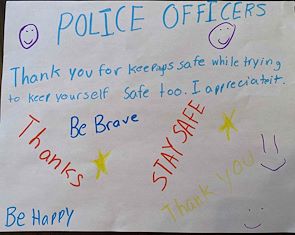 POLICE OFFICERS
Thank you for keepings safe while trying
to keep yourself Safe too. I appreciate it.
Be Brave
Thanks
STAY SAFE
Thank you!!
Be Happy